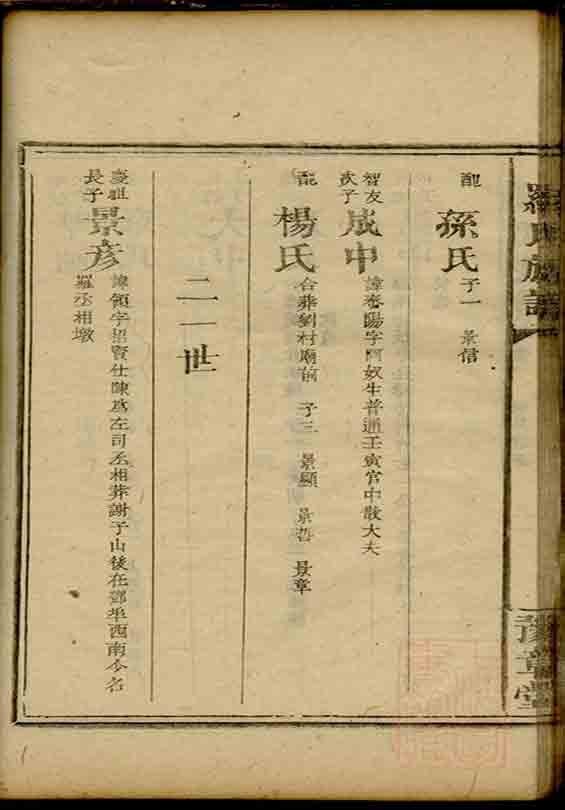 羅氏族譜
豫章堂
配 孫氏 子一 景信
智友次子 成中 諱春陽字阿奴生普通壬寅官中散大夫
配 楊氏 合葬劉村廟前 子三 景顯 景哲 景章
二一世
慶祖長子 景彦 諱領字招賢仕陳爲左司丞相葬謝予山後在鄧埠西南今名
羅丞相墩